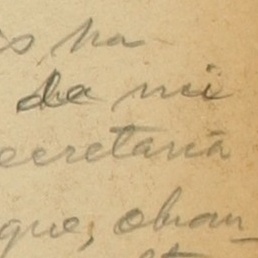 is ha
de mi
secretaria
que, obran-